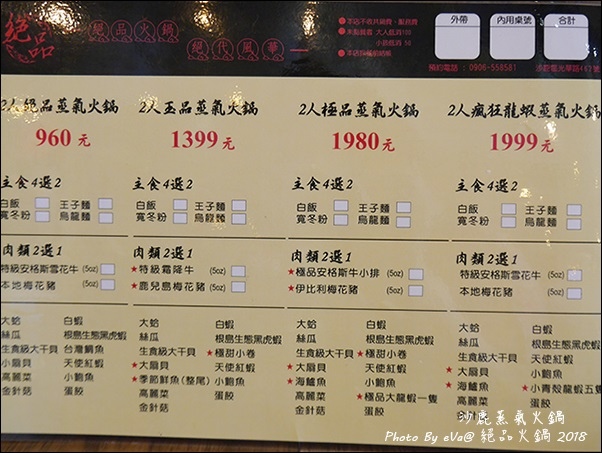 絕品
絕品火鍋
絕代風華
●本店不收共鍋費、服務費
●未點餐者 大人低消100
小孩低消 50
外帶
內用桌號
合計
預約電話：0906-558581
沙鹿區光華路
2人絕品蒸氣火鍋
960元
主食4選2
白飯 王子麵
寬冬粉 烏龍麵
肉類2選1
特級安格斯雪花牛(5oz)
本地梅花豬
大蛤 白蝦
絲瓜 根島生態黑虎蝦
生食級大干貝 台灣鯛魚
小扇貝 天使紅蝦
高麗菜 小鮑魚
金針菇 蛋餃
2人玉品蒸氣火鍋
1399元
主食4選2
白飯 王子麵
寬冬粉 烏龍麵
肉類2選1
★特級霜降牛 (5oz)
★鹿兒島梅花豬 (5oz)
大蛤 白蝦
絲瓜 根島生態黑虎蝦
生食級大干貝 ★極甜小卷
★大扇貝 天使紅蝦
★季節鮮魚(整尾) 小鮑魚
高麗菜 蛋餃
金針菇
2人極品蒸氣火鍋
1980元
主食4選2
白飯 王子麵
寬冬粉 烏龍麵
肉類2選1
★極品安格斯牛小排 (5oz)
★伊比利梅花豬 (5oz)
大蛤 白蝦
絲瓜 根島生態黑虎蝦
生食級大干貝 ★極甜小卷
★大扇貝 天使紅蝦
★海鱺魚 小鮑魚
高麗菜 ★極品大龍蝦一隻
金針菇 蛋餃
2人瘋狂龍蝦蒸氣火鍋
1999元
主食4選2
白飯 王子麵
寬冬粉 烏龍麵
肉類2選1
特級安格斯雪花牛 (5oz)
本地梅花豬 (5oz)
大蛤 白蝦
絲瓜 根島生態黑虎蝦
生食級大干貝 天使紅蝦
★大扇貝 小鮑魚
★海鱺魚 ★小青殼龍蝦五隻
高麗菜 蛋餃
金針菇
沙鹿蒸氣火鍋
Photo By eVa@ 絕品火鍋 2018